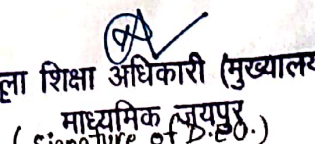 ला शिक्षा अधिकारी (मुख्यालय
माध्यमिक जयपुर
(Signature of D.E.O.)